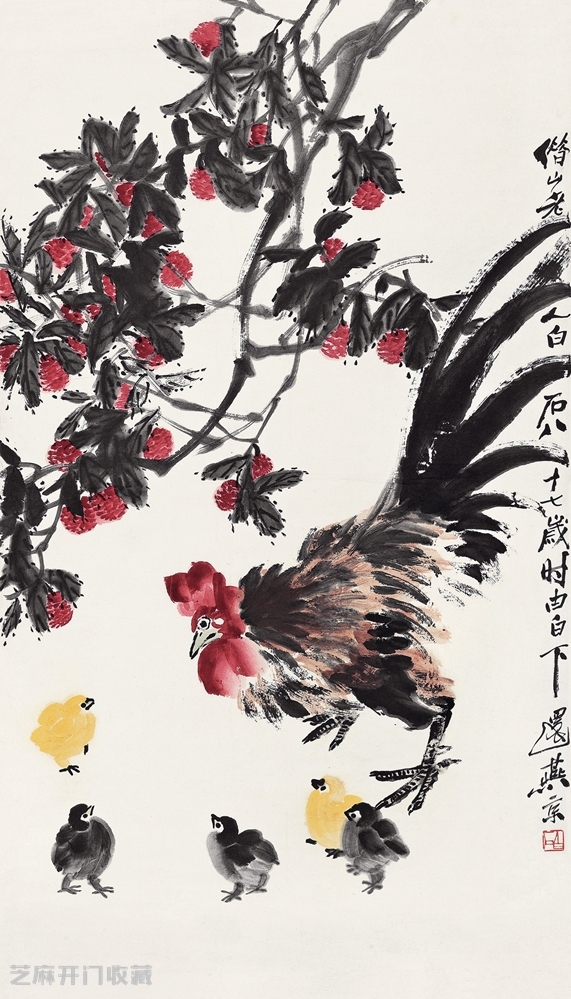 借山老人白石八十七岁时由白下还燕京
芝麻开门收藏